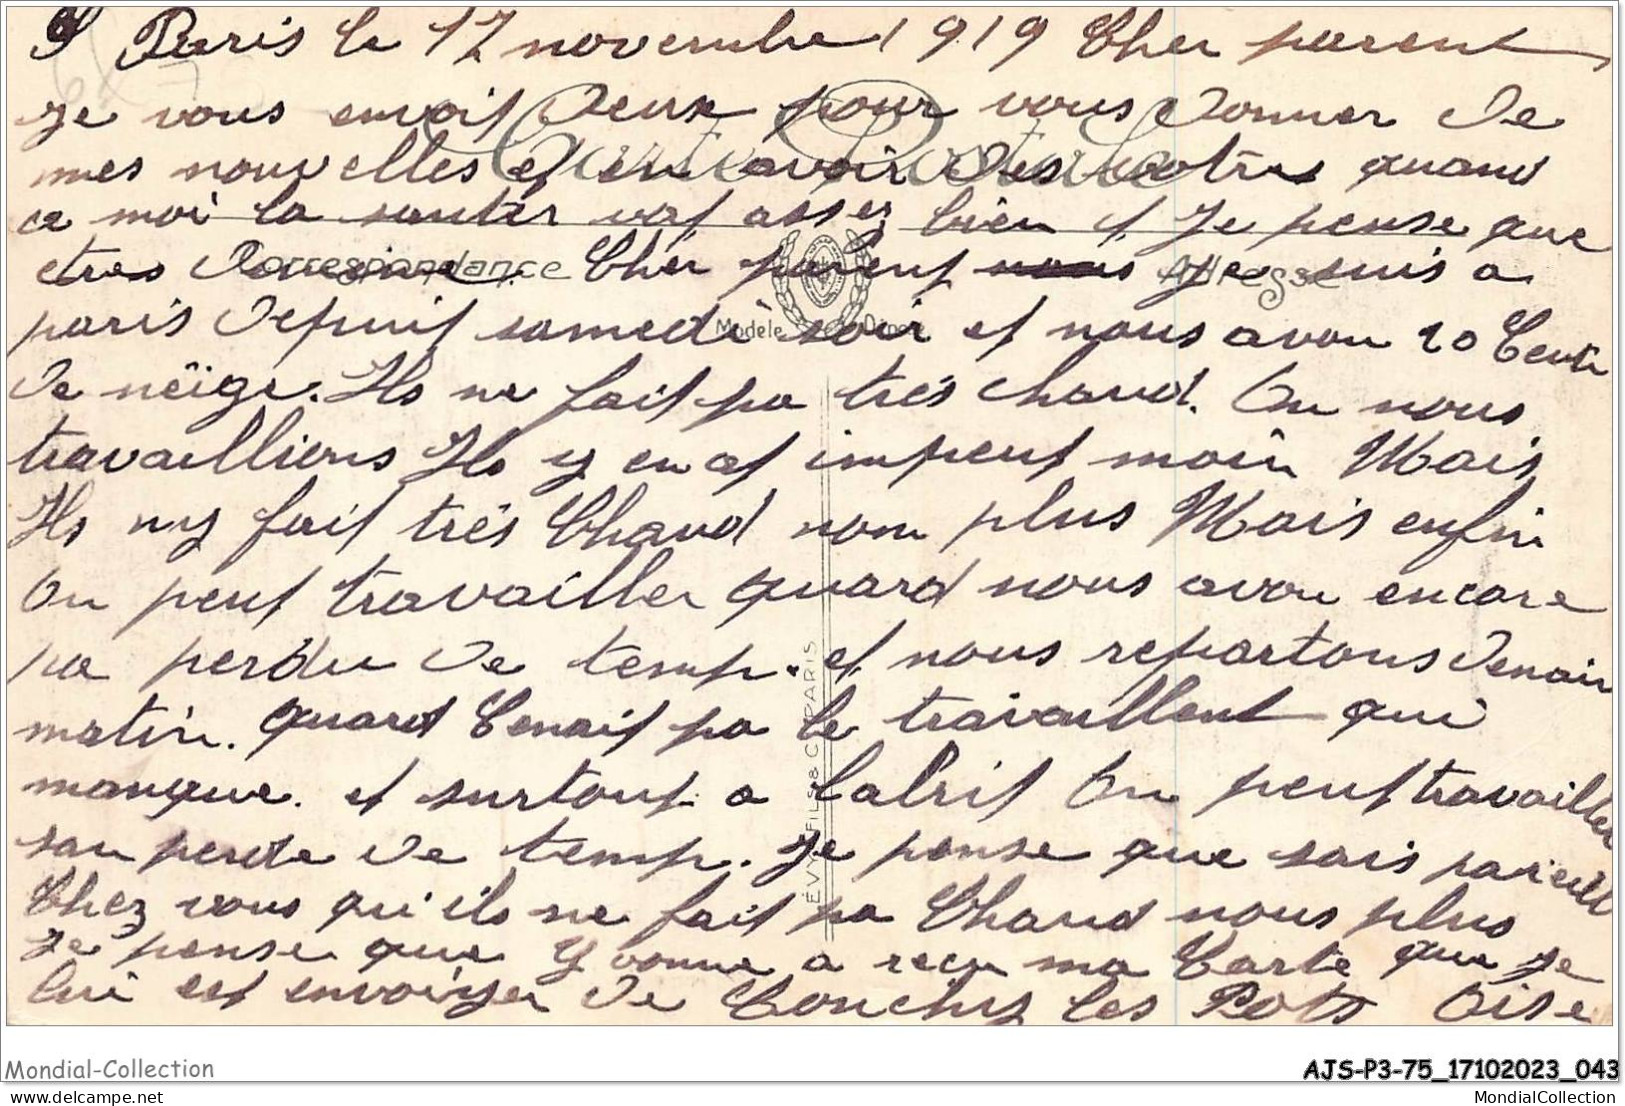 Paris le 17 novembre 1919 Cher parent
je vous envoit deux pour vous donner de
mes nouvelles et en avoir des votres quand
a moi la santer vat asser bien et Je pense que
Cher parent je suis a
paris depuit samedi soir et nous avon 20 Centi
de nêige. Ils ne fait pa trés chaud. On nous
travaillions Ils y en at impeut moin Mais
Ils ny fait trés Chaud nom plus Mais enfin
On peut travailler quard nous avon encore
pa perdu de temp. et nous repartons demain
matin. quard Cenait pa le travaillent qui
manque. et surtout a labrit On peut travailler
san perdre de temp. Je pense que sais pareill
Chez vous qu'ils ne fait pa Chaud nous plus
Je pense que Yvonne a reçu ma Carte que je
lui est envoiyer de Conchy les Pots Oise
Carte Postale
Correspondance
Adresse
Modèle Déposé
LÉVY FILS & Cie PARIS
Mondial-Collection
AJS-P3-75_17102023_043
delcampe.net
MondialCollection